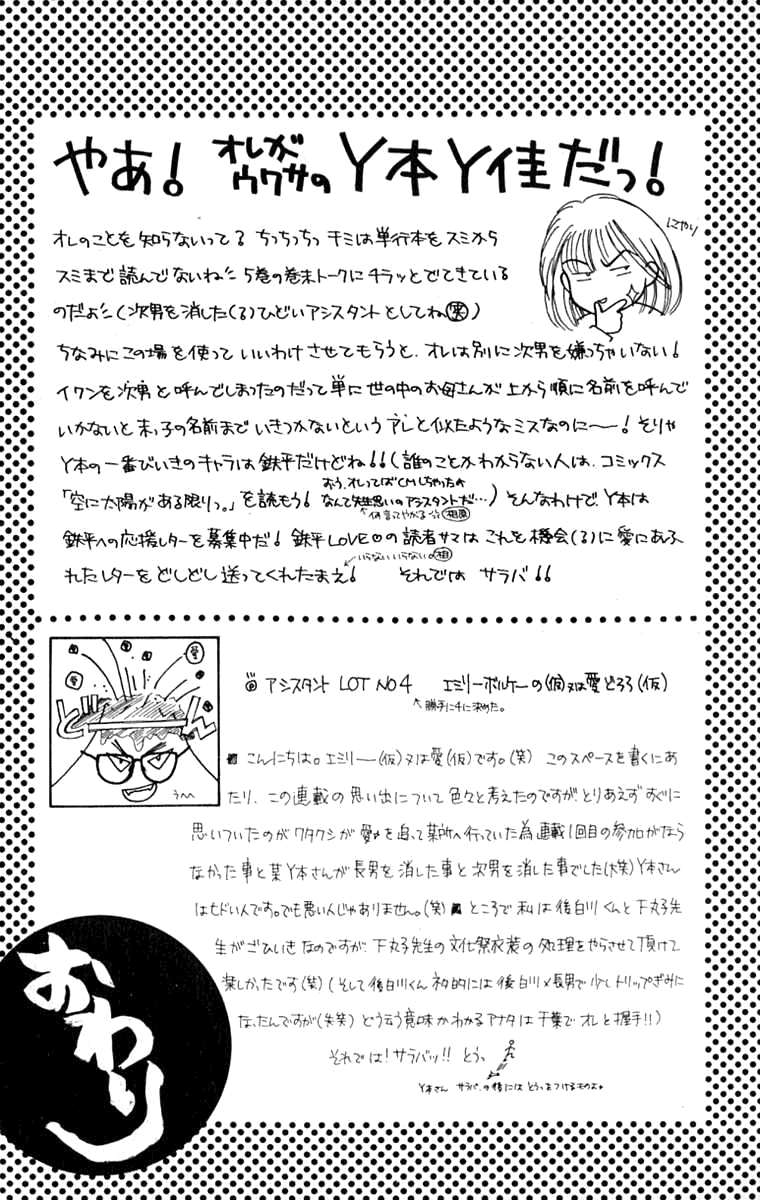 やあ! オレがウワサの Y本Y佳だっ!
にやり
オレのことを知らないってる ちっちっちっ キミは単行本をスミから
スミまで読んでないね!! 5巻の巻末トークにチラッとでてきている
のだよ!!(次男を消した(る)ひどいアシスタントとしてね(笑))
ちなみにこの場を使って いいわけさせてもらうと、オレは別に次男を嫌っちゃいない!
イワンを次男と呼んでしまったのだって単に世の中のお母さんが上から順に名前を呼んで
いかないと末っ子の名前までいきつかないという アレと似たようなミスなのに〜〜! そりゃ
Y本の一番びいきのキャラは鉄平だけどね!!(誰のことかわからない人は、コミックス
「空に太陽がある限りっ。」を読もう! おう、オレってばCMしちゃったよ なんて先生思いのアシスタントだ…) そんなわけで、Y本は
鉄平への応援レターを募集中だ! 鉄平LOVE♡の読者サマは これを機会(る)に愛にあふ
いらないいらない
れたレターを どしどし送ってくれたまえ! それでは サラバ!!
愛
愛
うへへ
アシスタント LOT NO4 エミリーボルケーの(仮)又は愛どろろ(仮)
勝手に4に決めた。
こんにちは。エミリー(仮)又は愛(仮)です。(笑) このスペースを書くにあ
たり、この連載の思い出について色々と考えたのですが とりあえずすぐに
思いついたのがワタクシが愛を追って某所へ行っていた為連載1回目の参加がなら
なかった事と某Y本さんが長男を消した事と次男を消した事でした(大笑)Y本さん
はヒドイ人です。でも悪い人じゃありません。(笑) ところで私は後白川くんと下丸子先
生がごひいきなのですが、下丸子先生の文化祭衣装の処理をやらせて頂けて
楽しかったです(笑)(そして後白川くん 私的には後白川×長男で少しトリップぎみに
なったんですが(失笑) どう云う意味かわかるアナタは千葉でオレと握手!!)
それでは! サラバッ!! とうっ
Y本さん サラバ、の後には とうっをつけるものよ。
おわり